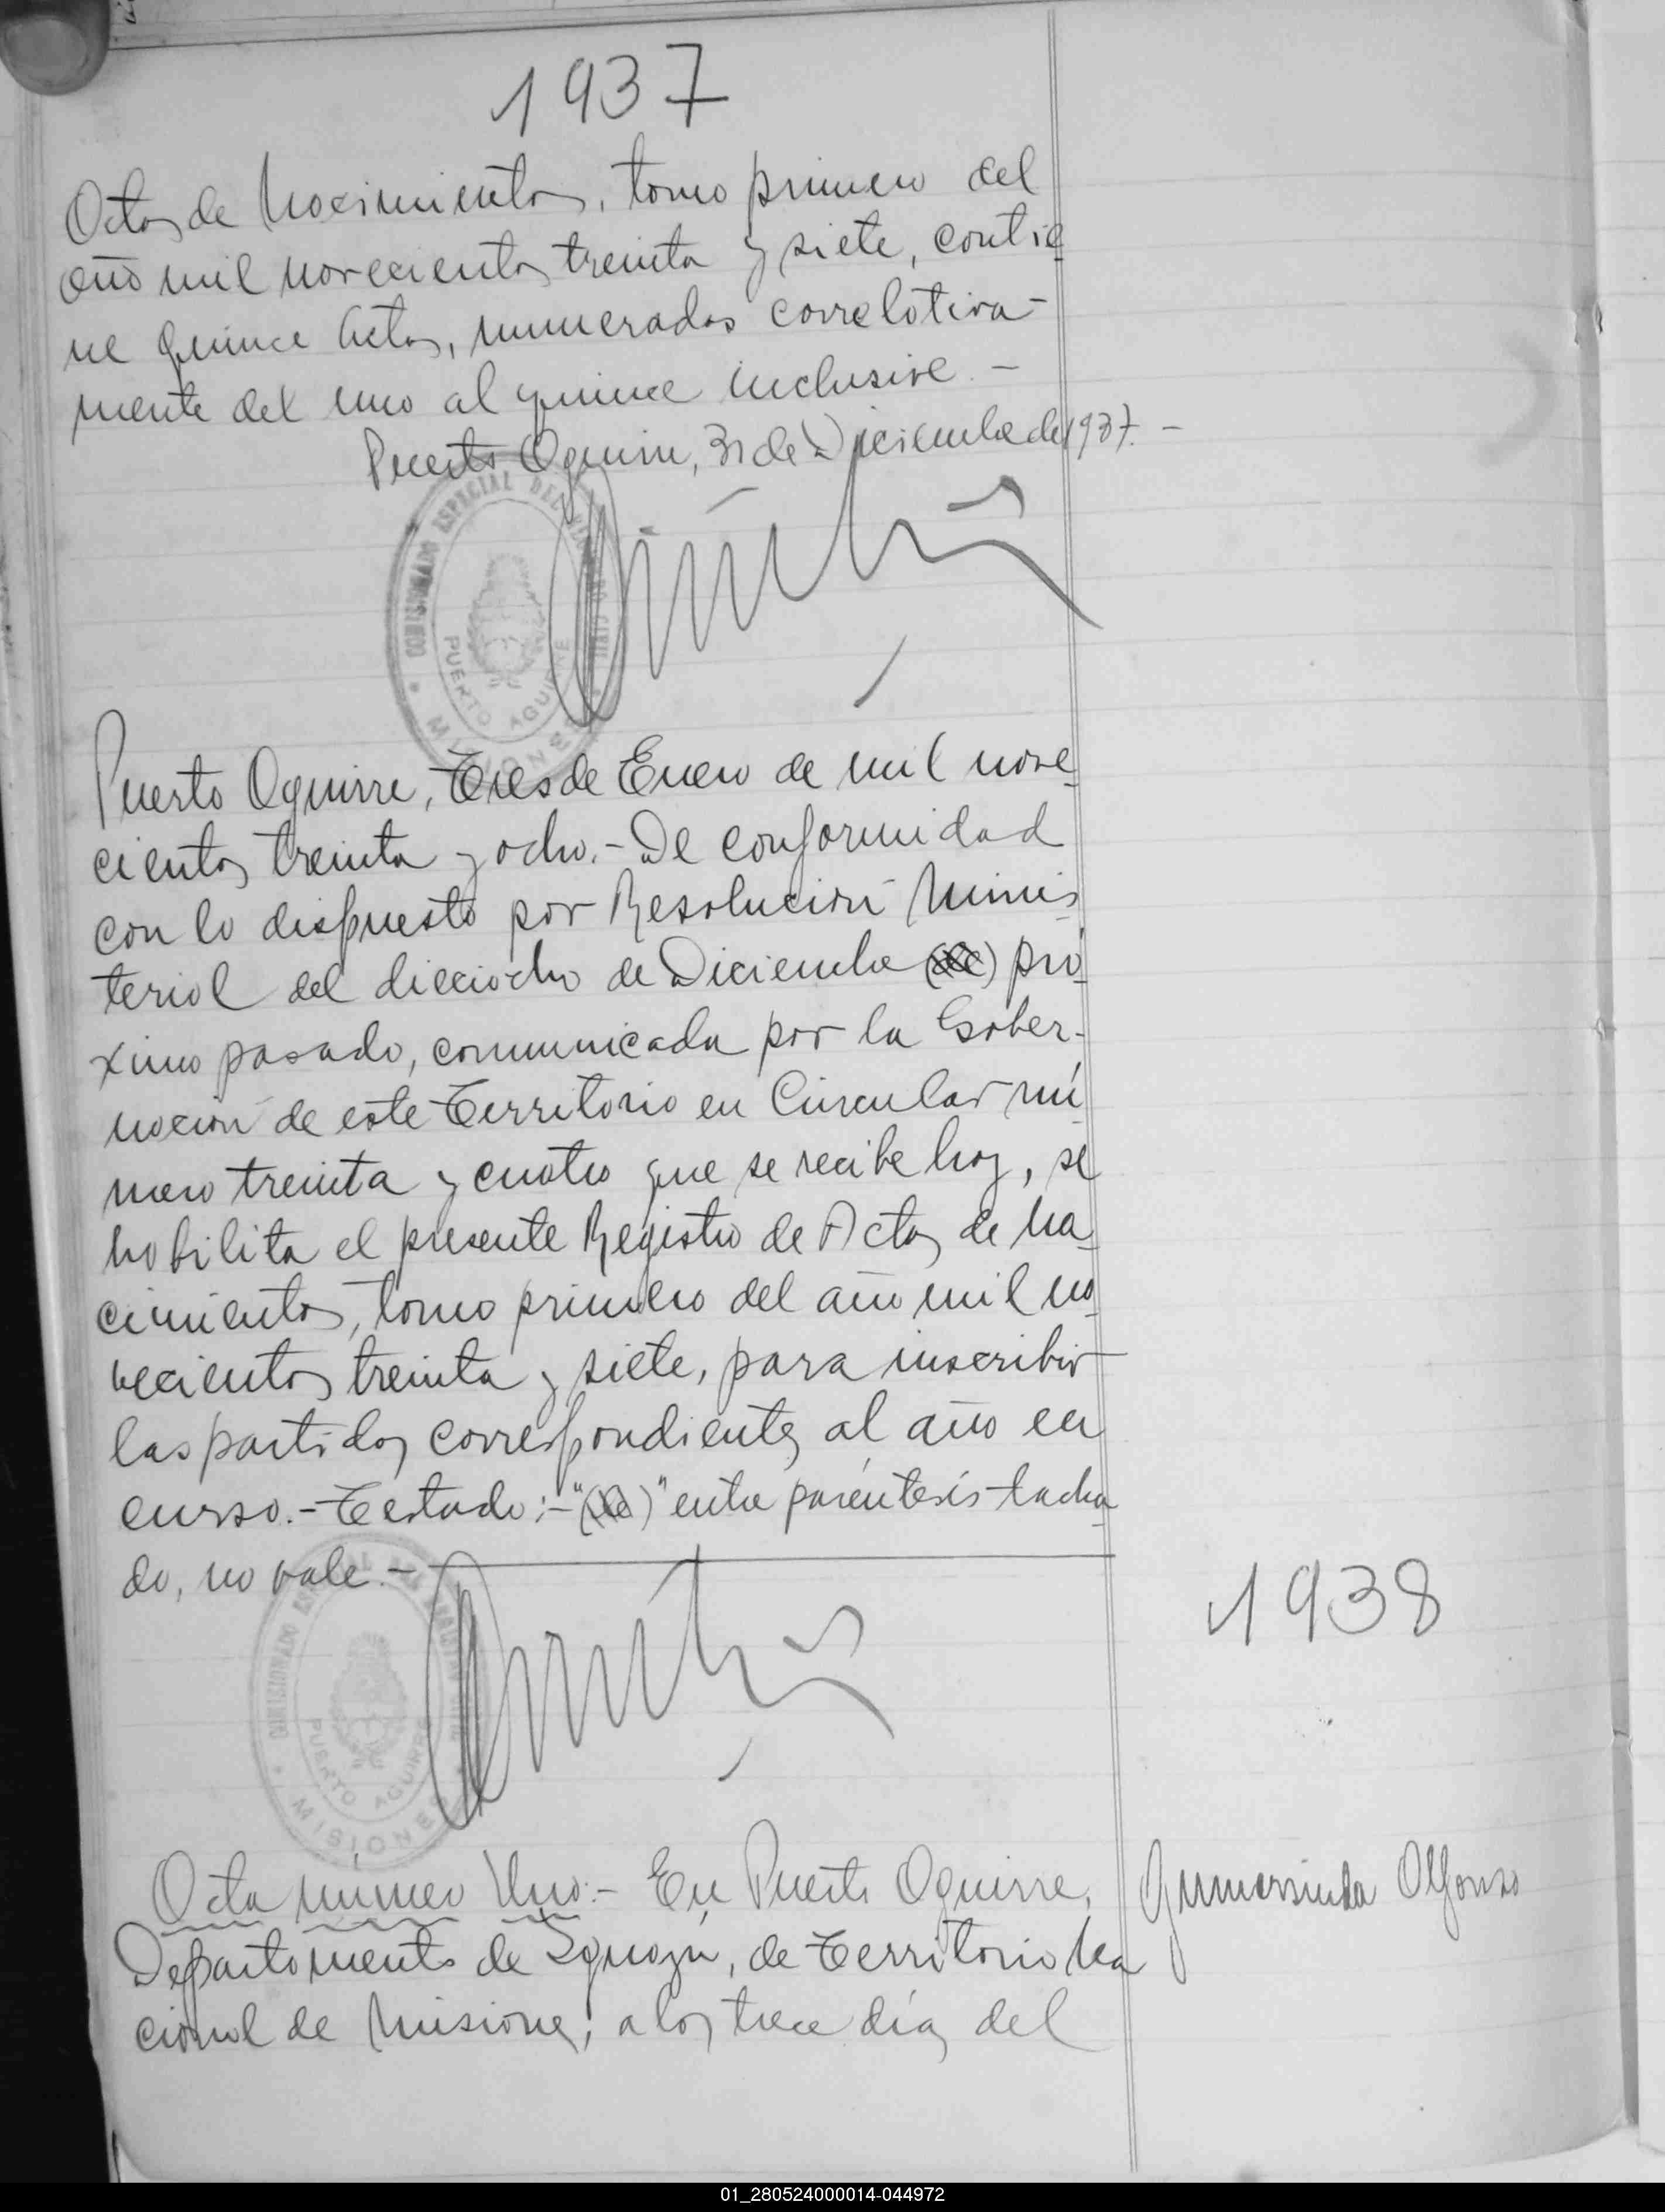 1937
Actas de Nacimientos, tomo primero del
año mil novecientos treinta y siete, contie
ne quince Actas, numeradas correlativa-
mente del uno al quince inclusive.-
Puerto Aguirre, 31 de Diciembre de 1937.-
COMISIONADO ESPECIAL DEL REGISTRO CIVIL
PUERTO AGUIRRE
* MISIONES *
Puerto Aguirre, Tres de Enero de mil nove
cientos treinta y ocho.- De conformidad
con lo dispuesto por Resolución Minis
terial del dieciocho de Diciembre (de) pró
ximo pasado, comunicada por la Gober-
nación de este Territorio en Circular nú
mero treinta y cuatro que se recibe hoy, se
habilita el presente Registro de Actas de Na
cimientos, tomo primero del año mil no
vecientos treinta y siete, para inscribir
las partidas correspondientes al año en
curso.- Testado:- "(de)" entre paréntesis tacha
do, no vale.-
1938
COMISIONADO ESPECIAL DEL REGISTRO CIVIL
PUERTO AGUIRRE
* MISIONES *
Acta número Uno.- En Puerto Aguirre,
Gumersinda Alfonso
Departamento de Iguazú, de Territorio Na
cional de Misiones, a los trece días del
01_280524000014-044972